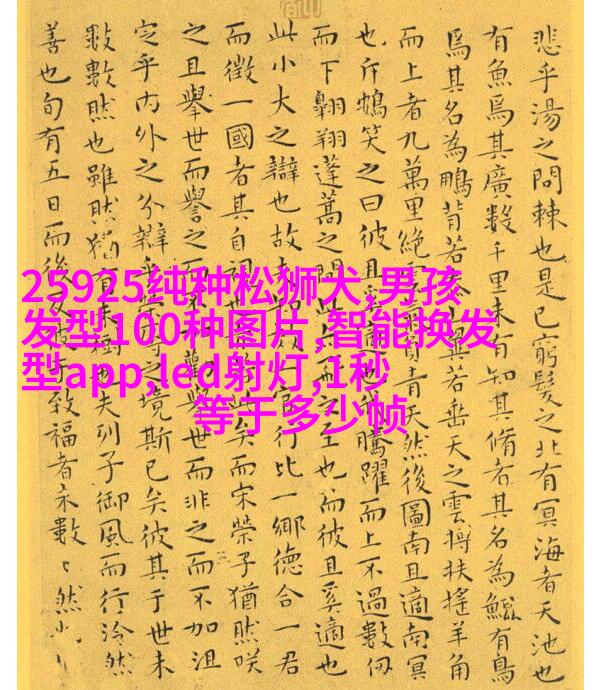 25925纯种松狮犬,男孩
发型100种图片,智能换发
型app,led射灯,1秒
等于多少帧
悲乎湯之問棘也是已窮髮之北有冥海者天池也
有魚焉其廣數千里未有知其脩者其名為鯤有鳥
焉其名為鵬背若翼若垂天之雲摶扶搖羊角
而上者九萬里絕雲負青天然後圖南且適南冥
也斥鴳笑之曰彼且奚適也騰躍而上不過數仞
而下翱翔蓬蒿之間此之至也而彼且奚適也
此小大之辯也故一官行比一鄉德合一君
而徵一國者其自視也矣而宋榮子猶然咲
之且舉世而譽之而舉世而非之而不加沮
定乎內外之分辯乎之境斯已矣彼其于世未
數數然也雖然猶有未樹也夫列子御風而行泠然
善也旬有五日而後反于致福者未數〻然也